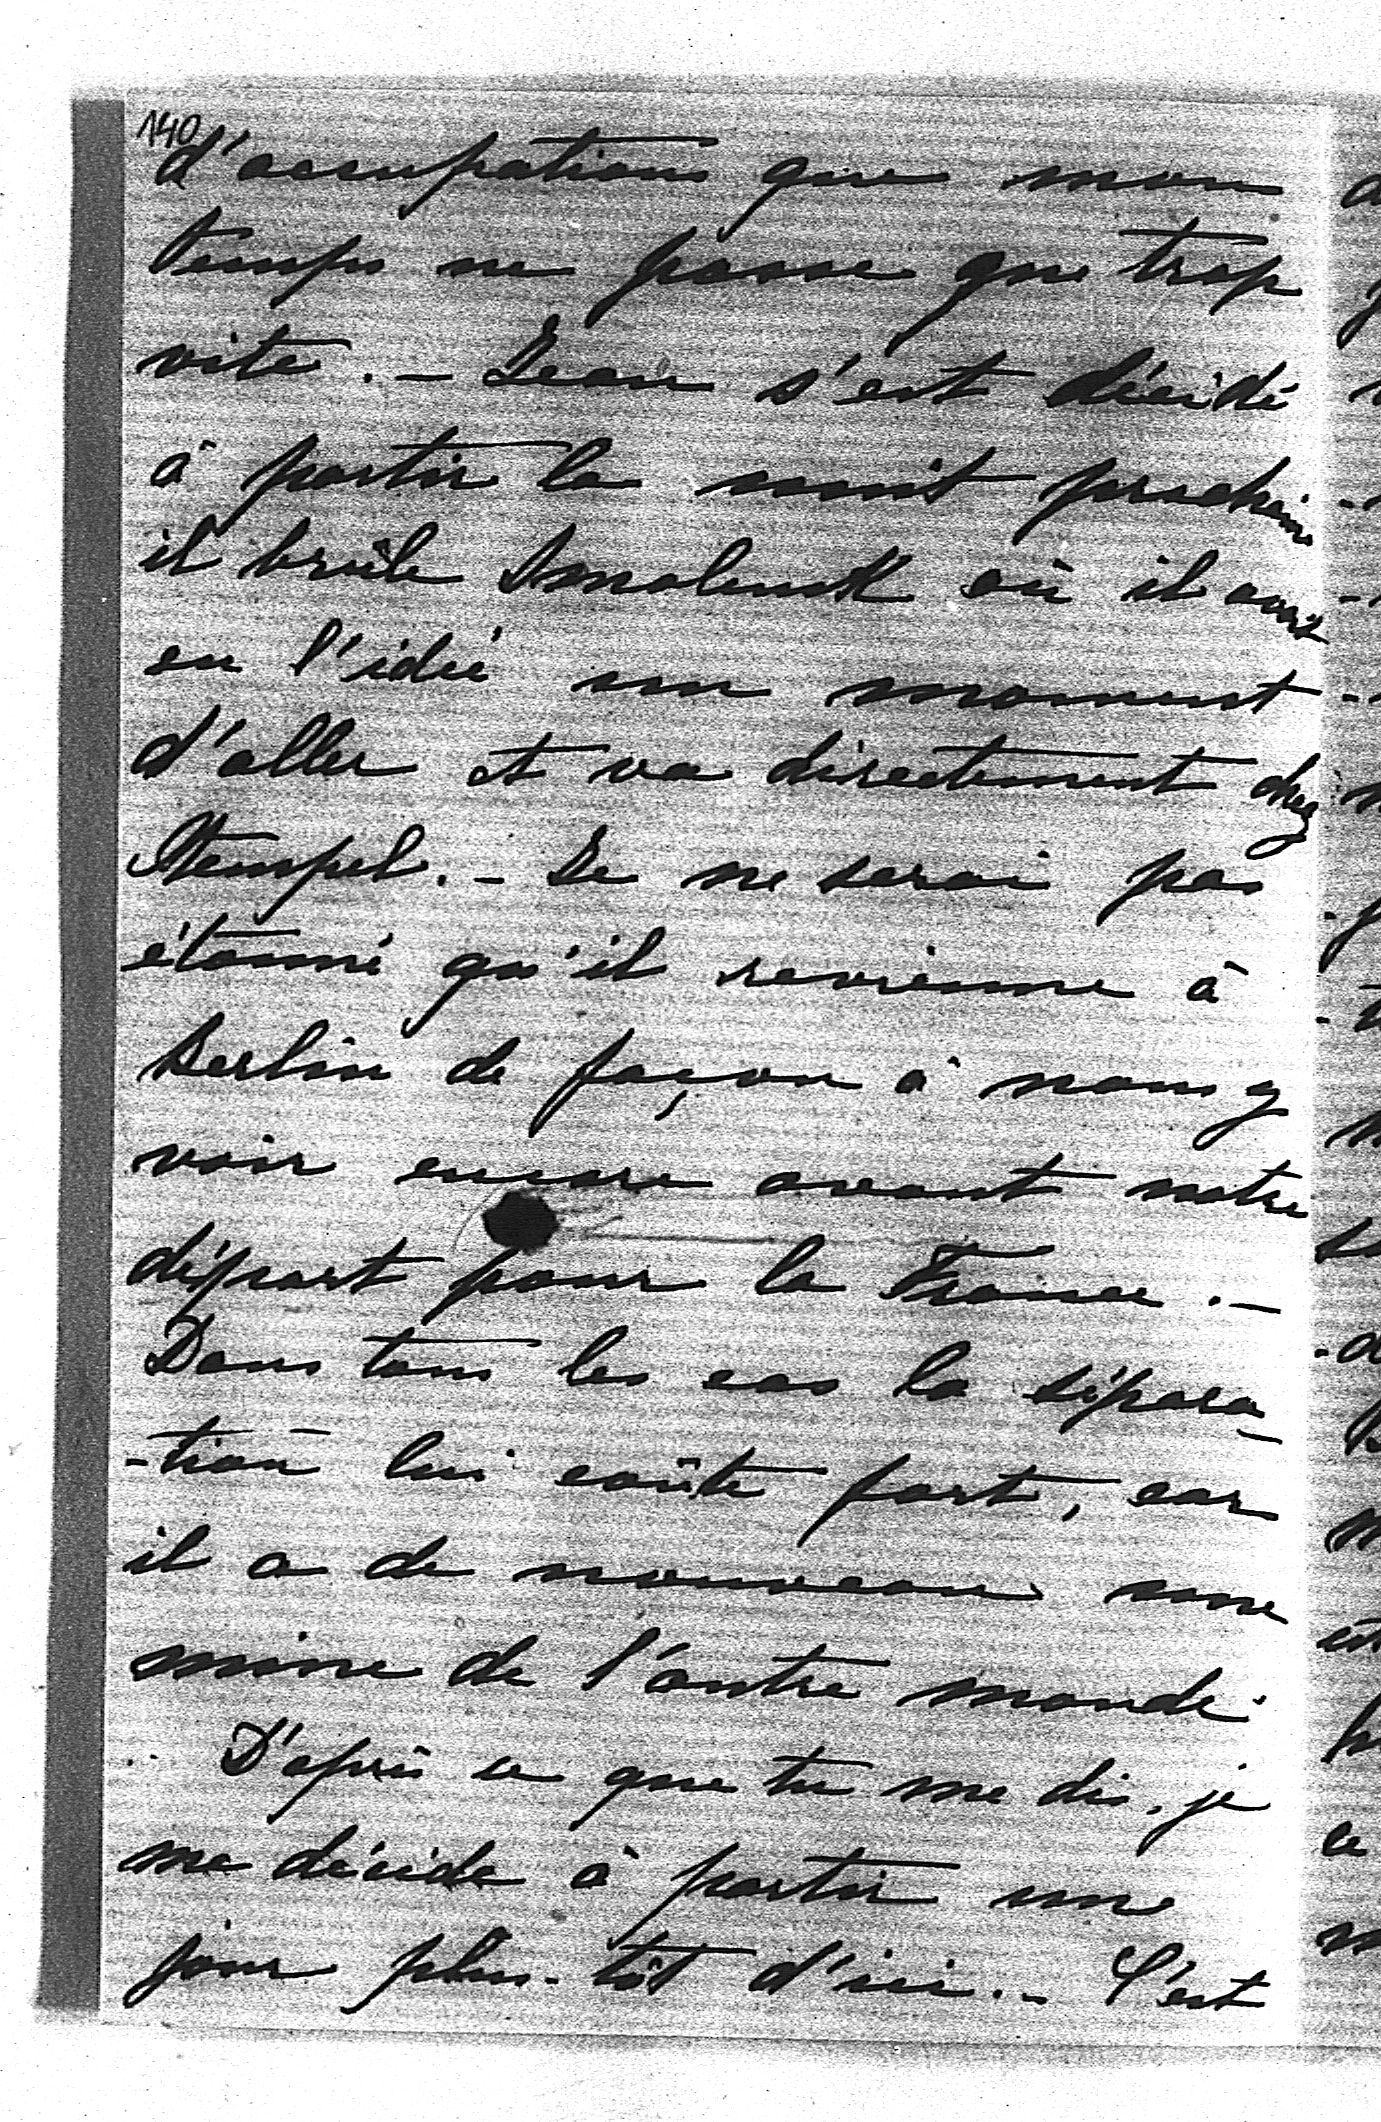 140
d'occupations que mon
temps ne passe que trop
vite. – Jean s'est décidé
à partir la nuit prochaine
il brûle Smolensk où il avait
eu l'idée un moment
d'aller et va directement chez
Stempel. – Je ne serai pas
étonné qu'il revienne à
Berlin de façon à nous y
voir encore avant notre
départ pour la France. –
Dans tous les cas la sépara-
-tion lui coûte fort, car
il a de nouveau une
mine de l'autre monde.
D'après ce que tu me dis, je
me décide à partir un
jour plus-tôt d'ici. – C'est